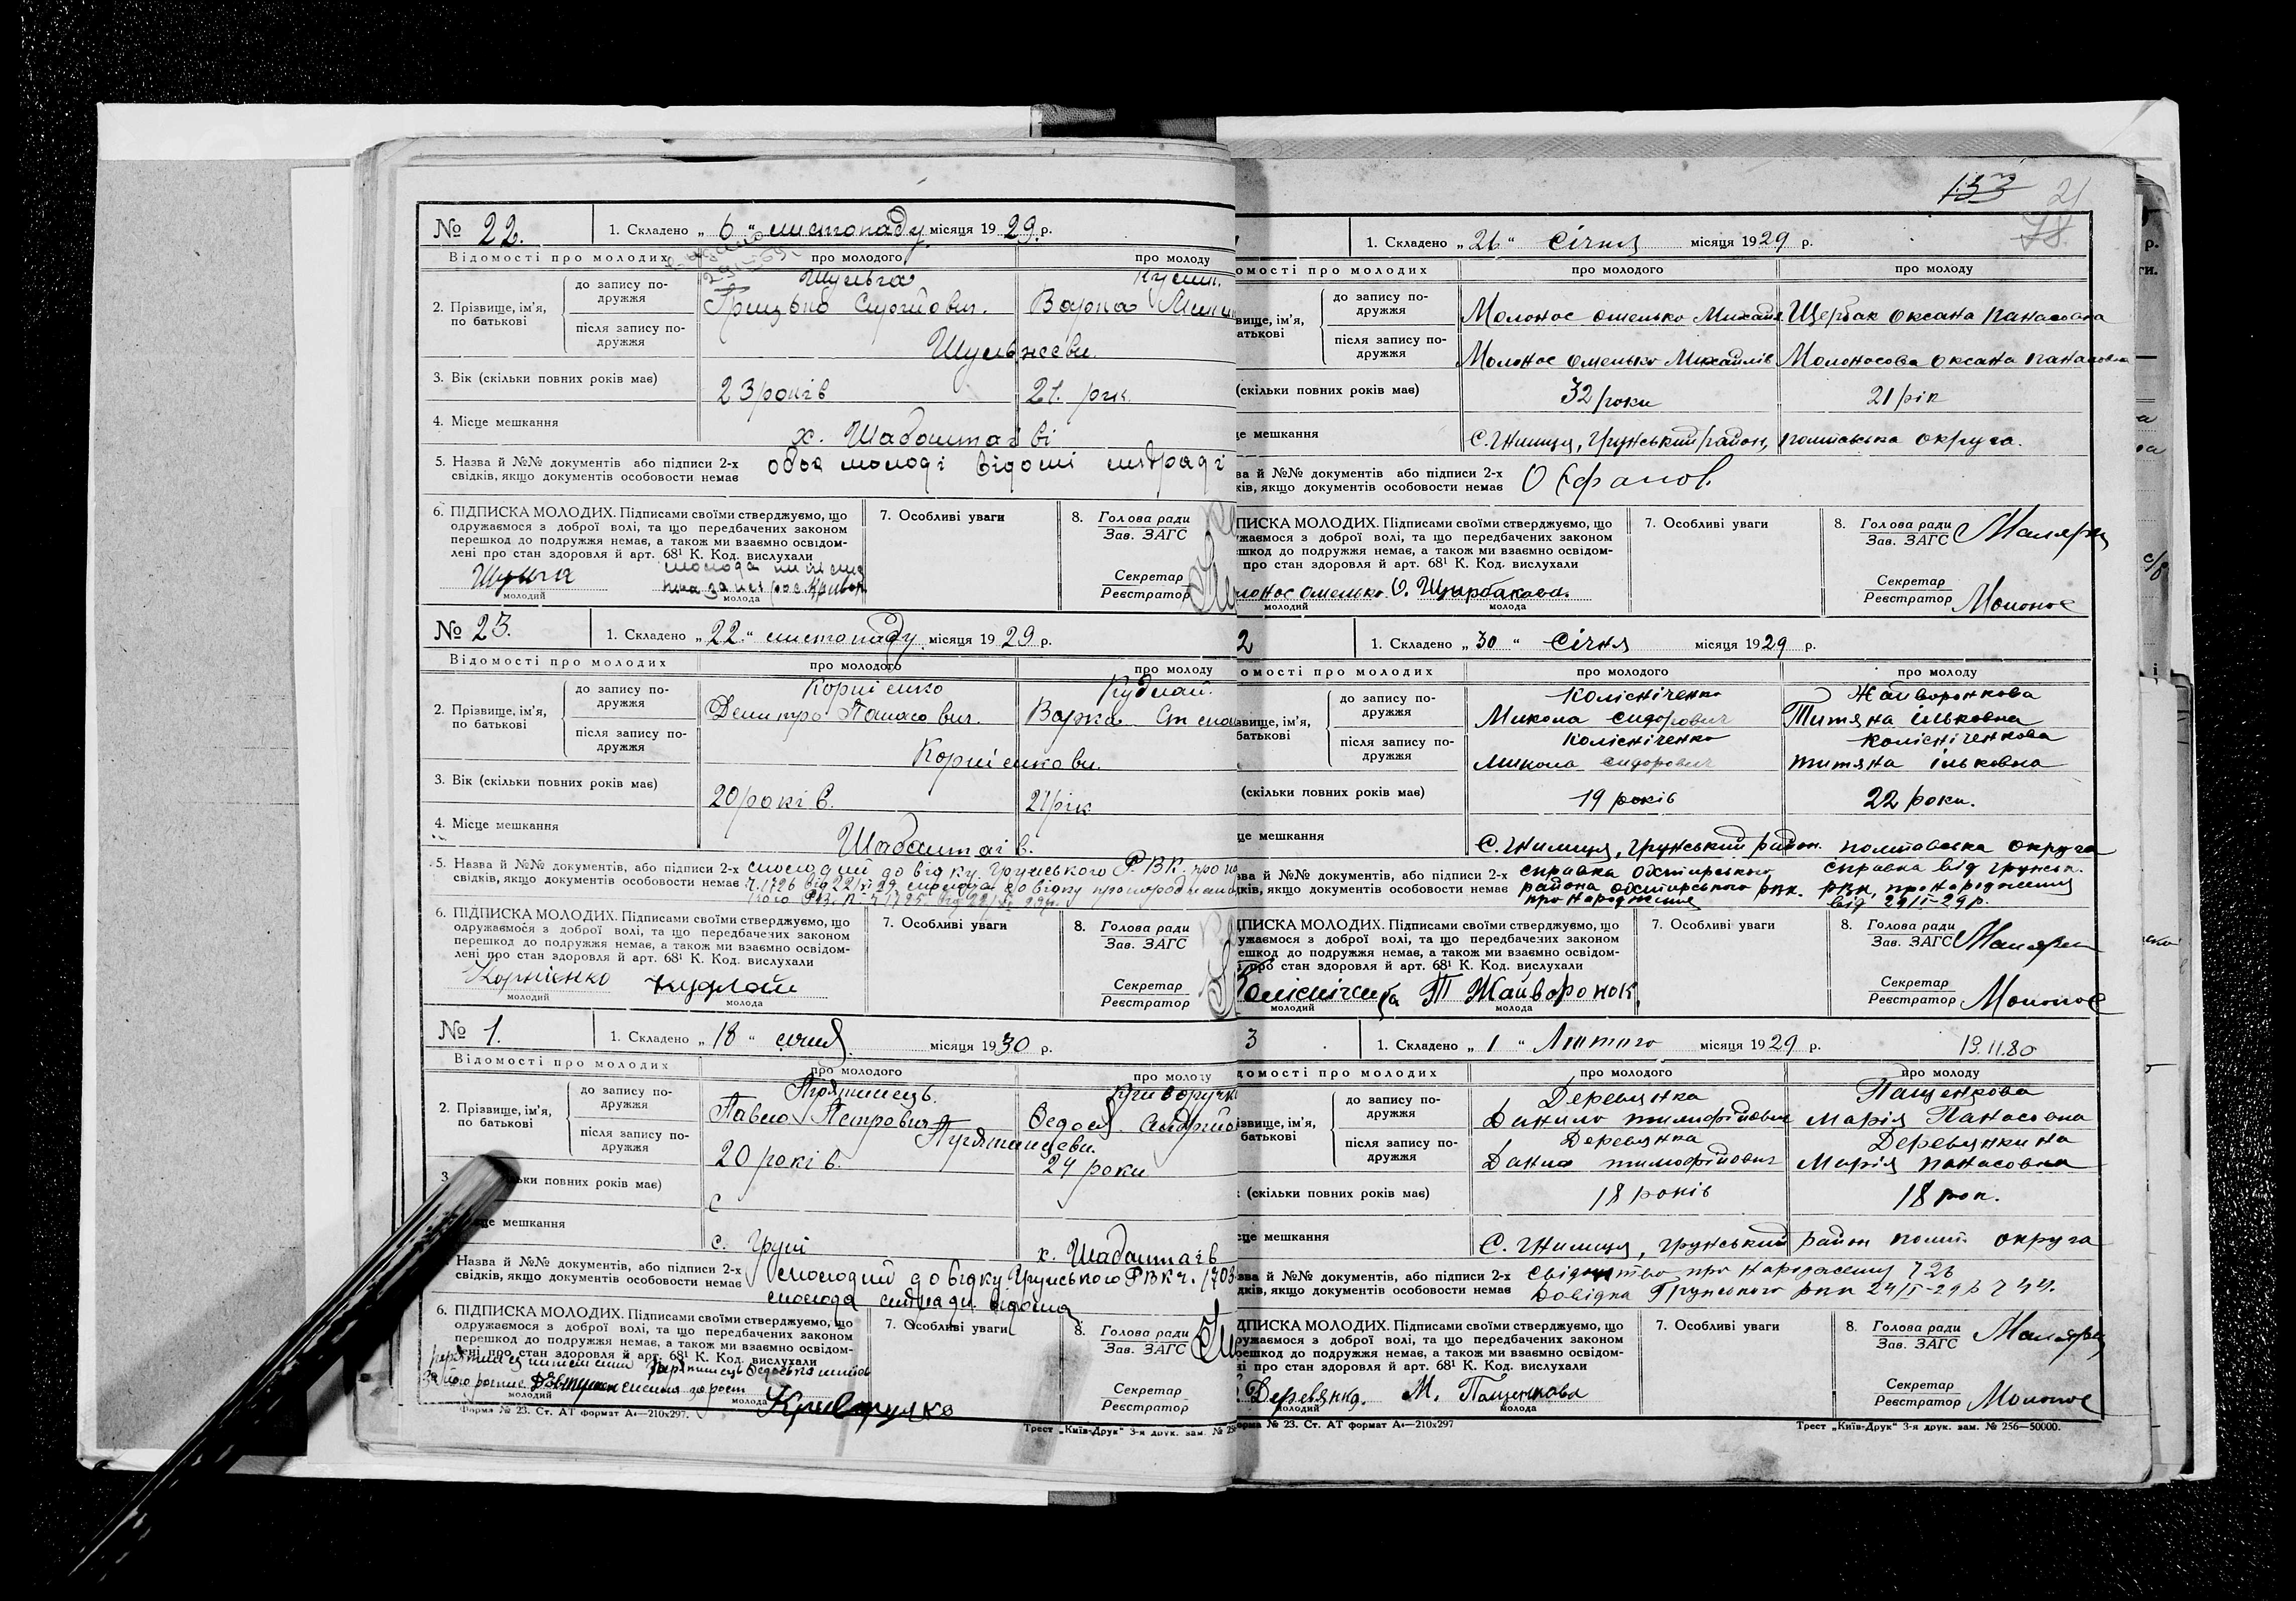 № 22. 1. Складено „ 6 “ листопаду місяця 1929 р.
Відомості про молодих про молодого про молоду
2. Прізвище, ім'я, по батькові
до запису по-
дружжя
Шульга
Грицько Сергійович. Варка
після запису по-
дружжя
Шульженви.
3. Вік (скільки повних років має) 23 років 21. рік.
4. Місце мешкання х. Шабалтаїв
5. Назва й №№ документів або підписи 2-х обоє молоді відомі сільраді
свідків, якщо документів особовости немає
6. ПІДПИСКА МОЛОДИХ. Підписами своїми стверджуємо, що
одружаємося з доброї волі, та що передбачених законом
перешкод до подружжя немає, а також ми взаємно освідом-
лені про стан здоровля й арт. 68¹ К. Код. вислухали
Шульга молода
молодий молода
7. Особливі уваги
8. Голова ради
Зав. ЗАГС
Секретар
Реєстратор
№ 23. 1. Складено „ 22. “ листопаду місяця 1929 р.
Відомості про молодих про молодого про молоду
2. Прізвище, ім'я, по батькові
до запису по-
дружжя
Корнієнко Кудлай.
Демитро Панасович. Варка
після запису по-
дружжя
Корнієнкови.
3. Вік (скільки повних років має) 20 років. 21 рік
4. Місце мешкання Шабалтаїв.
5. Назва й №№ документів, або підписи 2-х молодий довідку Грунського Р.В.К. про
свідків, якщо документів особовости немає ч. 1726 від 22/XI 29. молода довідку про
6. ПІДПИСКА МОЛОДИХ. Підписами своїми стверджуємо, що
одружаємося з доброї волі, та що передбачених законом
перешкод до подружжя немає, а також ми взаємно освідом-
лені про стан здоровля й арт. 68¹ К. Код. вислухали
Корнієнко Кудлай
молодий молода
7. Особливі уваги
8. Голова ради
Зав. ЗАГС
Секретар
Реєстратор
№ 1. 1. Складено „ 18 “ січня місяця 1930 р.
Відомості про молодих про молодого про молоду
2. Прізвище, ім'я, по батькові
до запису по-
дружжя
Павло Петрович Ведося
після запису по-
дружжя
20 років. 24 роки
ьки повних років має)
це мешкання с. Груні х. Шабалтаїв
Назва й №№ документів, або підписи 2-х молодий довідку Грунського РВК ч. 1703
свідків, якщо документів особовости немає молода сільраді відома
6. ПІДПИСКА МОЛОДИХ. Підписами своїми стверджуємо, що
одружаємося з доброї волі, та що передбачених законом
перешкод до подружжя немає, а також ми взаємно освідом-
лені про стан здоровля й арт. 68¹ К. Код. вислухали
молодий молода
Криворучко
7. Особливі уваги
8. Голова ради
Зав. ЗАГС
Секретар
Реєстратор
Форма № 23. Ст. АТ формат А4—210х297. Трест „Київ-Друк“ 3-я друк. зам. №
133 21
78
1. Складено „ 26 “ Січня місяця 1929 р.
омості про молодих про молодого про молоду
до запису по-
дружжя
Молонос Омелько Михайл Щербак Оксана Панасовна
вище, ім'я,
батькові
після запису по-
дружжя
Молонос Омелько Михайлів Молоносова Оксана Панасовна
(скільки повних років має) 32 роки 21 рік
це мешкання С. Жилиця, Грунський район, полтавська округа.
ва й №№ документів або підписи 2-х
ків, якщо документів особовости немає
ПИСКА МОЛОДИХ. Підписами своїми стверджуємо, що
жаємося з доброї волі, та що передбачених законом
шкод до подружжя немає, а також ми взаємно освідом-
про стан здоровля й арт. 68¹ К. Код. вислухали
лонос Омелько О. Щырбакова.
молодий молода
7. Особливі уваги
8. Голова ради
Зав. ЗАГС
Секретар
Реєстратор Молонос
2 1. Складено „ 30 “ Січня місяця 1929 р.
омості про молодих про молодого про молоду
до запису по-
дружжя
Колісніченко Жайворонкова
Микола Сидорович Титяна Ільковна
вище, ім'я,
батькові
після запису по-
дружжя
Колісніченко Колісніченкова
Микола Сидорович Титяна Ільковна
(скільки повних років має) 19 років 22 роки.
це мешкання С. Жилиця, Грунський район. полтавська округа
ва й №№ документів, або підписи 2-х справка Охтирського справка від грунськ.
дків, якщо документів особовости немає района Охтирського рвк. рвк, про народження
про народження від 29/I-29р.
ДПИСКА МОЛОДИХ. Підписами своїми стверджуємо, що
ужаємося з доброї волі, та що передбачених законом
ешкод до подружжя немає, а також ми взаємно освідом-
про стан здоровля й арт. 68¹ К. Код. вислухали
Т Жайворонок
молодий молода
7. Особливі уваги
8. Голова ради
Зав. ЗАГС
Секретар
Реєстратор Молонос
3 1. Складено „ 1 “ Лютого місяця 1929 р. 19.11.80
домості про молодих про молодого про молоду
до запису по-
дружжя
Деревянка Пащенкова
Данило тимофійович Марія Панасовна
ізвище, ім'я,
батькові
після запису по-
дружжя
Деревянка Деревянкина
Данило тимофійович Марія панасовна
(скільки повних років має) 18 років 18 рок.
сце мешкання С. Жилиця, Грунський район полт. округа
зва й №№ документів, або підписи 2-х свідоцтво про народження 726
дків, якщо документів особовости немає Довідка Грунського рвк 24/I-29р 744.
ДПИСКА МОЛОДИХ. Підписами своїми стверджуємо, що
ружаємося з доброї волі, та що передбачених законом
решкод до подружжя немає, а також ми взаємно освідом-
ні про стан здоровля й арт. 68¹ К. Код. вислухали
Деревянко. М. Пащенкова
молодий молода
7. Особливі уваги
8. Голова ради
Зав. ЗАГС
Секретар
Реєстратор Молонос
орма № 23. Ст. АТ формат А4—210х297 Трест „Київ-Друк“ 3-я друк. зам. № 256—50000.